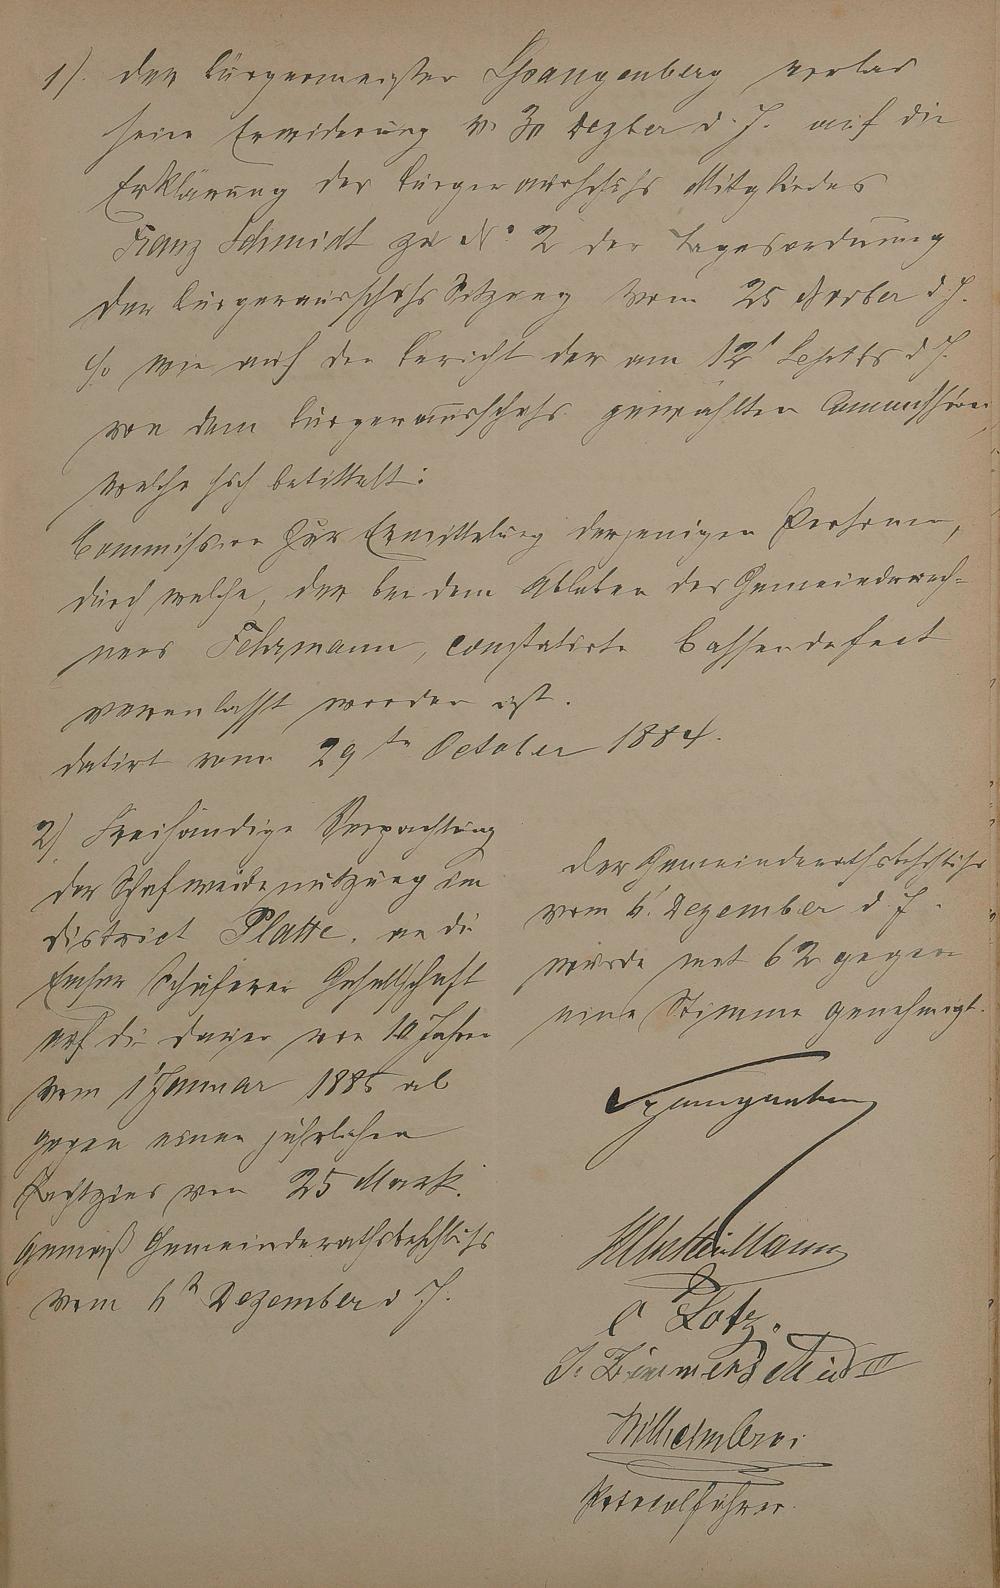 1). der Bürgermeister Spangenberg verlas
seine Erwiderung v. 3n Dezber d. J. auf die
Erklärung des Bürgerausschuß Mitgliedes
Franz Schmidt zu No. 2 der Tagesordnung
der Bürgerausschuß Sitzung vom 25 Novber d. J.
so wie auch den Bericht der am 12t Septbs d J.
von dem Bürgerausschuß gewählten Commission
welche sich betittelt:
Commission zur Ermittelung derjenigen Personen,
durch welche, der bei dem Ableben des Gemeinderech=
ners Fehrmann, constatirte Cassendefect
veranlasst worden ist.
datirt vom 29ten October 1884.
2) Freihändige Verpachtung
der Schafweidenutzung im
District Platte, an die
Emser Schäferei Gesellschaft
auf die Dauer von 10 Jahren
vom 1 Januar 1885 ab
gegen einen jährlichen
Pachtzins von 25 Mark.
gemäß Gemeinderathsbeschluß
vom 6n Dezember d J.
der Gemeinderathsbeschluß
vom 6. Dezember d. J.
wurde mit 62 gegen
eine Stimme genehmigt.
Spangenberg
C Lotz.
J. Zimmerschied II
Wilhelm
Protocolführer.